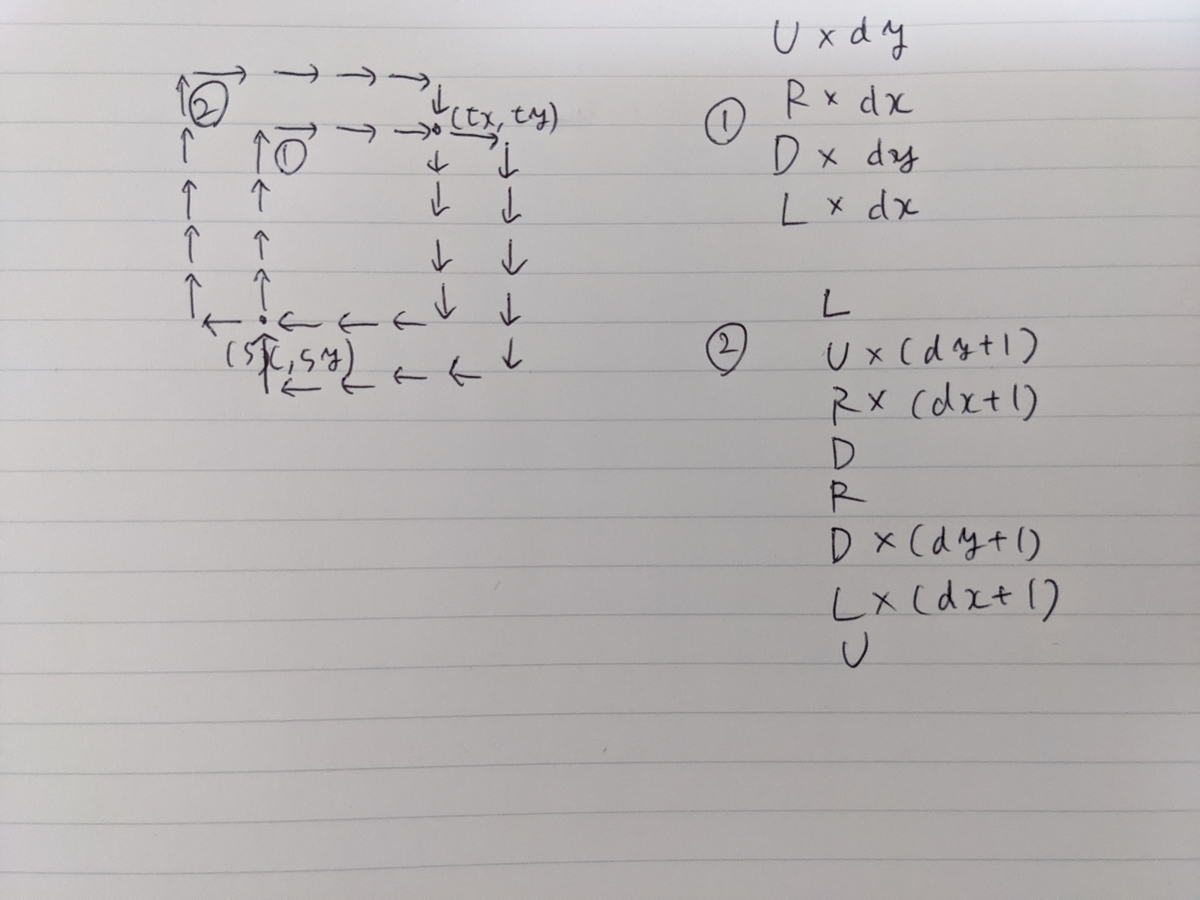 ②
(tx, ty)
①
(sx, sy)
U × dy
① R × dx
D × dy
L × dx
L
② U × (dy+1)
R × (dx+1)
D
R
D × (dy+1)
L × (dx+1)
U